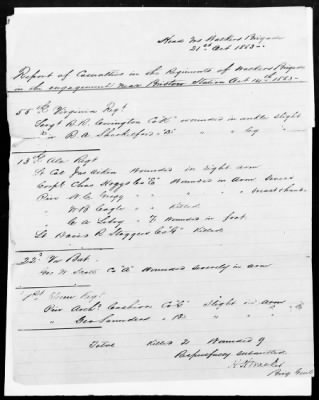 Head Qrs Walkers Brigade
21st Oct 1863
Report of Casualties in the Regiments of Walkers Brigade
in the engagement near Bristow Station Oct 14th 1863
55th Virginia Regt
Sergt R. R. Covington Co "G" wounded in ankle slight
" B. A. Shackelford "D" " " leg "
13th Ala Regt
Lt Col Jas Aiken Wounded in right arm
Corpl Chas Hoggs Co "C" Wounded in Arm severe
Priv N. C. Grigg " " " " breast &
" W B Eagle " " Killed
" C A " F Wounded in foot
Lt David R Staggers Co "G" Killed
22d Va Bat.
W Scott Co "A" Wounded severely in arm
1st Tenn Regt
Priv Archd Cashion Co "G" Slight in arm
" Geo Saunders " B " "
Total Killed 2 Wounded 9
Respectfully submitted
H H Walker
Brig Genl